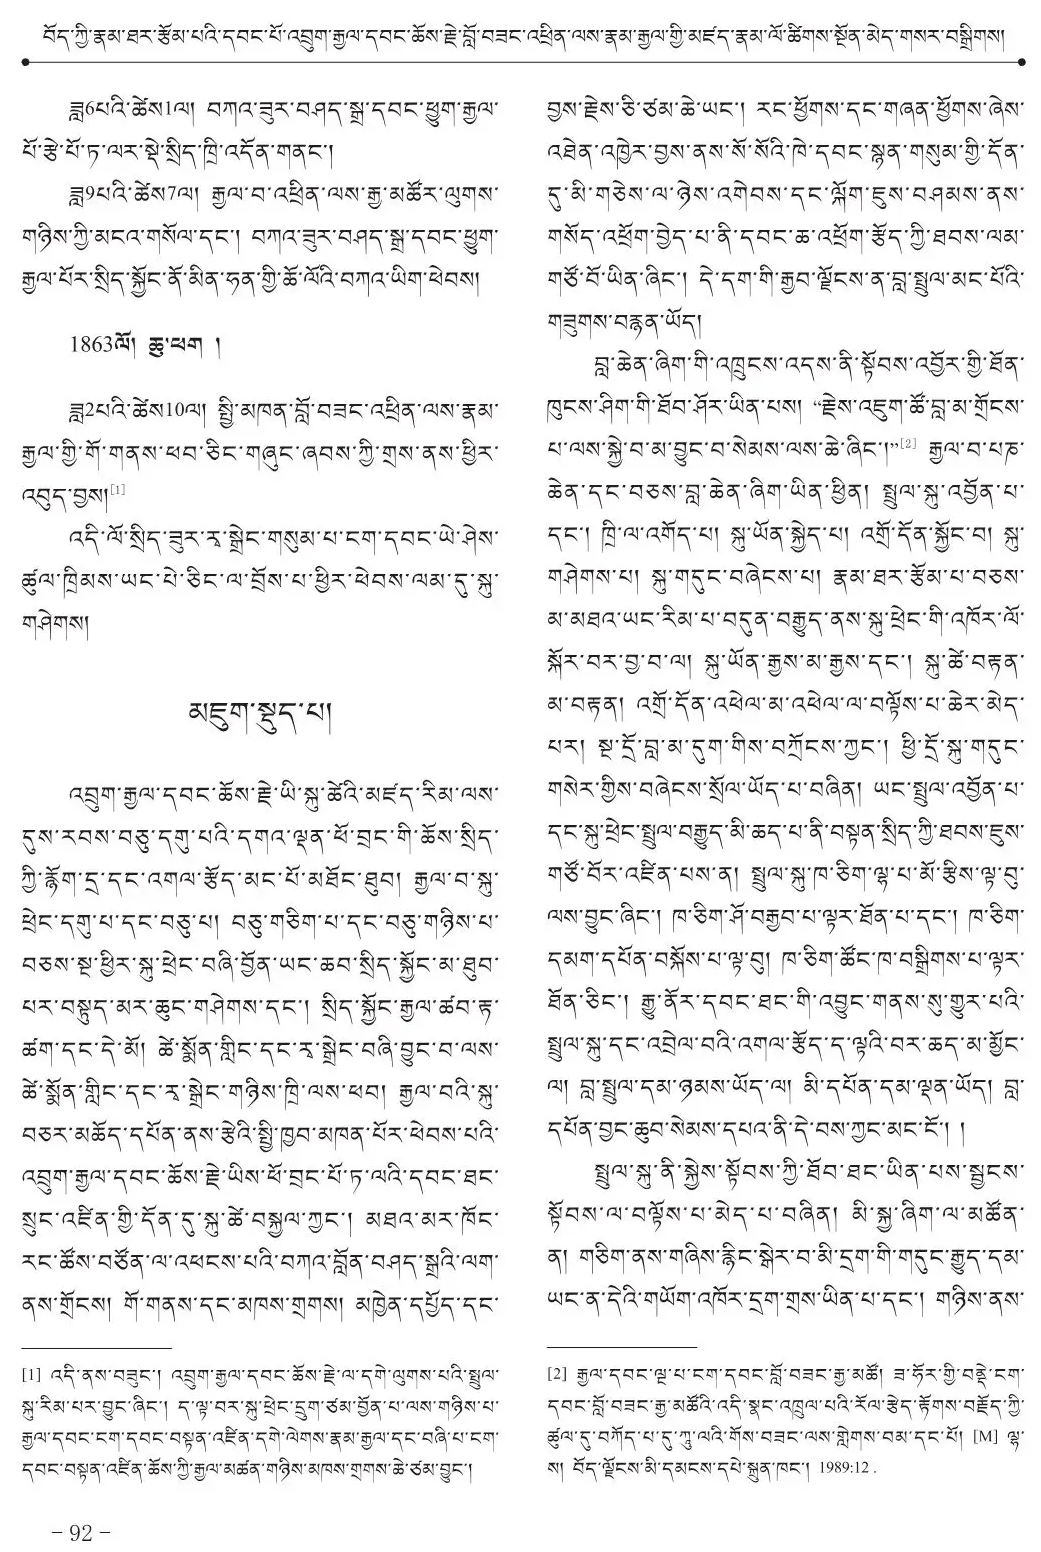 བོད་ཀྱི་རྣམ་ཐར་རྩོམ་པའི་དབང་པོ་འབྲུག་རྒྱལ་དབང་ཆོས་རྗེ་བློ་བཟང་འཕྲིན་ལས་རྣམ་རྒྱལ་གྱི་མཛད་རྣམ་ལོ་ཚིགས་སྔོན་མེད་གསར་བསྒྲིགས།
ཟླ6པའི་ཚེས1ལ། བཀའ་ཟུར་བཤད་སྒྲ་དབང་ཕྱུག་རྒྱལ་
པོ་རྩེ་པོ་ཏ་ལར་སྡེ་སྲིད་ཁྲི་འདོན་གནང་།
ཟླ9པའི་ཚེས7ལ། རྒྱལ་བ་འཕྲིན་ལས་རྒྱ་མཚོར་ལུགས་
གཉིས་ཀྱི་མངའ་གསོལ་དང་། བཀའ་ཟུར་བཤད་སྒྲ་དབང་ཕྱུག་
རྒྱལ་པོར་སྲིད་སྐྱོང་ནོ་མིན་ཧན་གྱི་ཆོ་ལོའི་བཀའ་ཡིག་ཕེབས།
1863ལོ། ཆུ་ཕག །
ཟླ2པའི་ཚེས10ལ། སྤྱི་མཁན་བློ་བཟང་འཕྲིན་ལས་རྣམ་
རྒྱལ་གྱི་གོ་གནས་ཕབ་ཅིང་གཞུང་ཞབས་ཀྱི་གྲས་ནས་ཕྱིར་
འབུད་བྱས།[1]
འདི་ལོ་སྲིད་ཟུར་རྭ་སྒྲེང་གསུམ་པ་ངག་དབང་ཡེ་ཤེས་
ཚུལ་ཁྲིམས་ཡང་པེ་ཅིང་ལ་བྲོས་པ་ཕྱིར་ཕེབས་ལམ་དུ་སྐུ་
གཤེགས།
མཇུག་སྡུད་པ།
འབྲུག་རྒྱལ་དབང་ཆོས་རྗེ་ཡི་སྐུ་ཚེའི་མཛད་རིམ་ལས་
དུས་རབས་བཅུ་དགུ་པའི་དགའ་ལྡན་ཕོ་བྲང་གི་ཆོས་སྲིད་
ཀྱི་རྙོག་དྲ་དང་འགལ་རྩོད་མང་པོ་མཐོང་ཐུབ། རྒྱལ་བ་སྐུ་
ཕྲེང་དགུ་པ་དང་བཅུ་པ། བཅུ་གཅིག་པ་དང་བཅུ་གཉིས་པ་
བཅས་སྔ་ཕྱིར་སྐུ་ཕྲེང་བཞི་བྱོན་ཡང་ཆབ་སྲིད་སྐྱོང་མ་ཐུབ་
པར་བསྟུད་མར་ཆུང་གཤེགས་དང་། སྲིད་སྐྱོང་རྒྱལ་ཚབ་རྟ་
ཚག་དང་དེ་མོ། ཚེ་སྨོན་གླིང་དང་རྭ་སྒྲེང་བཞི་བྱུང་བ་ལས་
ཚེ་སྨོན་གླིང་དང་རྭ་སྒྲེང་གཉིས་ཁྲི་ལས་ཕབ། རྒྱལ་བའི་སྐུ་
བཅར་མཆོད་དཔོན་ནས་རྩེའི་སྤྱི་ཁྱབ་མཁན་པོར་ཕེབས་པའི་
འབྲུག་རྒྱལ་དབང་ཆོས་རྗེ་ཡིས་ཕོ་བྲང་པོ་ཏ་ལའི་དབང་ཐང་
སྲུང་འཛིན་གྱི་དོན་དུ་སྐུ་ཚེ་བསྐྱལ་ཀྱང་། མཐའ་མར་ཁོང་
རང་ཚོས་བཙོན་ལ་འཕངས་པའི་བཀའ་བློན་བཤད་སྒྲའི་ལག་
ནས་གྲོངས། གོ་གནས་དང་མཁས་གྲགས། མཁྱེན་དཔྱོད་དང་
[1] འདི་ནས་བཟུང་། འབྲུག་རྒྱལ་དབང་ཆོས་རྗེ་ལ་དགེ་ལུགས་པའི་སྤྲུལ་
སྐུ་རིམ་པར་བྱུང་ཞིང་། ད་ལྟ་བར་སྐུ་ཕྲེང་དྲུག་ཙམ་བྱོན་པ་ལས་གཉིས་པ་
རྒྱལ་དབང་ངག་དབང་བསྟན་འཛིན་དགེ་ལེགས་རྣམ་རྒྱལ་དང་བཞི་པ་ངག་
དབང་བསྟན་འཛིན་ཆོས་ཀྱི་རྒྱལ་མཚན་གཉིས་མཁས་གྲགས་ཆེ་ཙམ་བྱུང་།
- 92 -
བྱས་རྗེས་ཅི་ཙམ་ཆེ་ཡང་། རང་ཕྱོགས་དང་གཞན་ཕྱོགས་ཞེས་
འཐེན་འཁྱེར་བྱས་ནས་སོ་སོའི་ཁེ་དབང་སྙན་གསུམ་གྱི་དོན་
དུ་མི་གཅེས་ལ་ཉེས་འགེབས་དང་ལྐོག་ཇུས་བཤམས་ནས་
གསོད་འཕྲོག་བྱེད་པ་ནི་དབང་ཆ་འཕྲོག་རྩོད་ཀྱི་ཐབས་ལམ་
གཙོ་བོ་ཡིན་ཞིང་། དེ་དག་གི་རྒྱབ་ལྗོངས་ན་བླ་སྤྲུལ་མང་པོའི་
གཟུགས་བརྙན་ཡོད།
བླ་ཆེན་ཞིག་གི་འཁྲུངས་འདས་ནི་སྟོབས་འབྱོར་གྱི་ཐོན་
ཁུངས་ཤིག་གི་ཐོབ་ཤོར་ཡིན་པས། “རྗེས་འཇུག་ཚོ་བླ་མ་གྲོངས་
པ་ལས་སྐྱེ་བ་མ་བྱུང་བ་སེམས་ལས་ཆེ་ཞིང་།”[2] རྒྱལ་བ་པཎ་
ཆེན་དང་བཅས་བླ་ཆེན་ཞིག་ཡིན་ཕྱིན། སྤྲུལ་སྐུ་འབྱོན་པ་
དང་། ཁྲི་ལ་འགོད་པ། སྐུ་ཡོན་སྐྱེད་པ། འགྲོ་དོན་སྐྱོང་བ། སྐུ་
གཤེགས་པ། སྐུ་གདུང་བཞེངས་པ། རྣམ་ཐར་རྩོམ་པ་བཅས་
མ་མཐའ་ཡང་རིམ་པ་བདུན་བརྒྱུད་ནས་སྐུ་ཕྲེང་གི་འཁོར་ལོ་
སྐོར་བར་བྱ་བ་ལ། སྐུ་ཡོན་རྒྱས་མ་རྒྱས་དང་། སྐུ་ཚེ་བརྟན་
མ་བརྟན། འགྲོ་དོན་འཕེལ་མ་འཕེལ་ལ་བལྟོས་པ་ཆེར་མེད་
པར། སྔ་དྲོ་བླ་མ་དུག་གིས་བཀྲོངས་ཀྱང་། ཕྱི་དྲོ་སྐུ་གདུང་
གསེར་གྱིས་བཞེངས་སྲོལ་ཡོད་པ་བཞིན། ཡང་སྤྲུལ་འབྱོན་པ་
དང་སྐུ་ཕྲེང་སྤྲུལ་བརྒྱུད་མི་ཆད་པ་ནི་བསྟན་སྲིད་ཀྱི་ཐབས་ཇུས་
གཙོ་བོར་འཛིན་པས་ན། སྤྲུལ་སྐུ་ཁ་ཅིག་ལྷ་པ་མོ་རྩིས་ལྟ་བུ་
ལས་བྱུང་ཞིང་། ཁ་ཅིག་ཤོ་བརྒྱབ་པ་ལྟར་ཐོན་པ་དང་། ཁ་ཅིག་
དམག་དཔོན་བསྐོས་པ་ལྟ་བུ། ཁ་ཅིག་ཚོང་ཁ་བསྒྲིགས་པ་ལྟར་
ཐོན་ཅིང་། རྒྱུ་ནོར་དབང་ཐང་གི་འབྱུང་གནས་སུ་གྱུར་པའི་
སྤྲུལ་སྐུ་དང་འབྲེལ་བའི་འགལ་རྩོད་ད་ལྟའི་བར་ཆད་མ་མྱོང་
ལ། བླ་སྤྲུལ་དམ་ཉམས་ཡོད་ལ། མི་དཔོན་དམ་ལྡན་ཡོད། བླ་
དཔོན་བྱང་ཆུབ་སེམས་དཔའ་ནི་དེ་བས་ཀྱང་མང་ངོ་། །
སྤྲུལ་སྐུ་ནི་སྐྱེས་སྟོབས་ཀྱི་ཐོབ་ཐང་ཡིན་པས་སྦྱངས་
སྟོབས་ལ་བལྟོས་པ་མེད་པ་བཞིན། མི་སྐྱ་ཞིག་ལ་མཚོན་
ན། གཅིག་ནས་གཞིས་རྙིང་སྒེར་བ་མི་དྲག་གི་གདུང་རྒྱུད་དམ་
ཡང་ན་དེའི་གཡོག་འཁོར་དྲག་གྲས་ཡིན་པ་དང་། གཉིས་ནས་
[2] རྒྱལ་དབང་ལྔ་པ་ངག་དབང་བློ་བཟང་རྒྱ་མཚོ། ཟ་ཧོར་གྱི་བནྡེ་ངག་
དབང་བློ་བཟང་རྒྱ་མཚོའི་འདི་སྣང་འཁྲུལ་པའི་རོལ་རྩེད་རྟོགས་བརྗོད་ཀྱི་
ཚུལ་དུ་བཀོད་པ་དུ་ཀུ་ལའི་གོས་བཟང་ལས་གླེགས་བམ་དང་པོ། [M] ལྷ་
ས། བོད་ལྗོངས་མི་དམངས་དཔེ་སྐྲུན་ཁང་། 1989:12 .